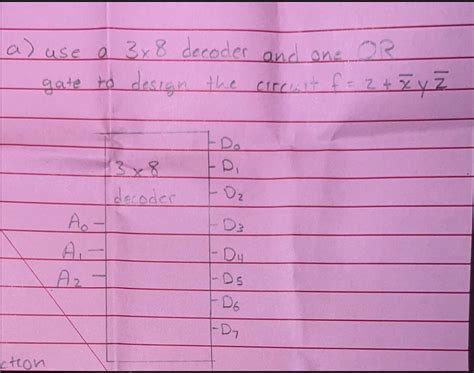 a) use a 3x8 decoder and one OR
gate to design the circuit f = z + x̅ y z̅
D₀
3x8
D₁
decoder
D₂
A₀
D₃
A₁
D₄
A₂
D₅
D₆
D₇
ction